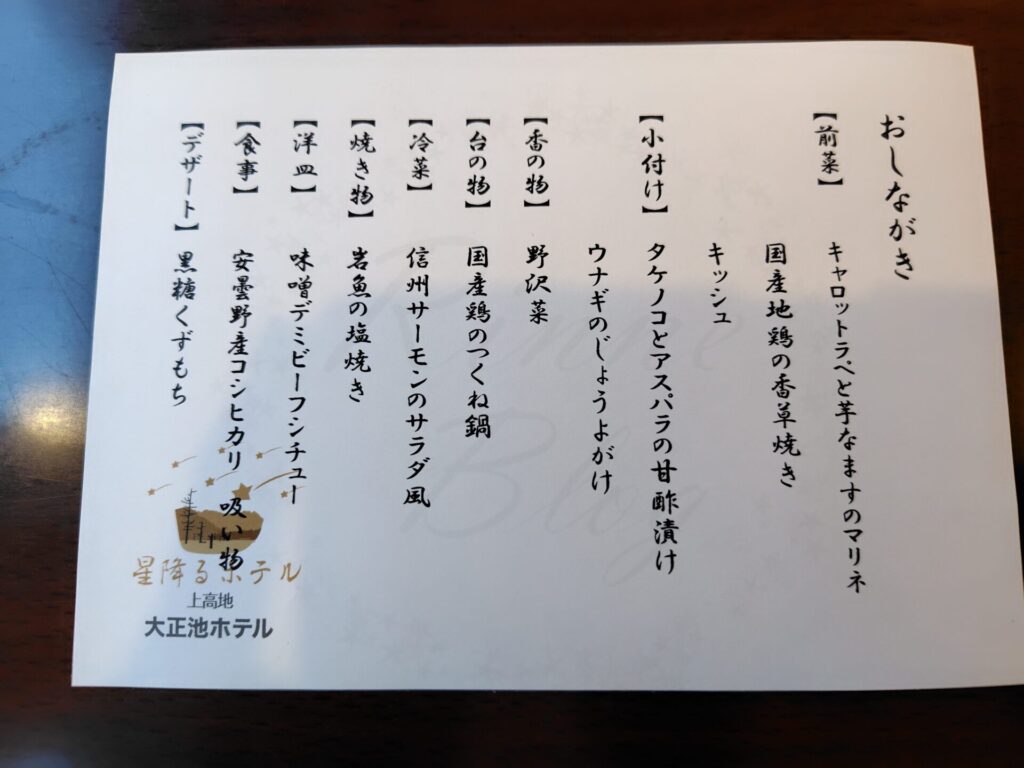 おしながき
【前菜】 キャロットラペと芋なますのマリネ
国産地鶏の香草焼き
キッシュ
【小付け】 タケノコとアスパラの甘酢漬け
ウナギのじょうよがけ
【香の物】 野沢菜
【台の物】 国産鶏のつくね鍋
【冷菜】 信州サーモンのサラダ風
【焼き物】 岩魚の塩焼き
【洋皿】 味噌デミビーフシチュー
【食事】 安曇野産コシヒカリ 吸い物
【デザート】 黒糖くずもち
星降るホテル
上高地
大正池ホテル
Rinne
Blog